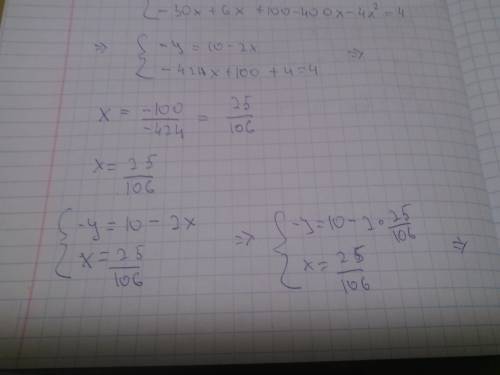 { -30x + 6x + 100 - 400x - 4x² = 4
=> { -y = 10 - 2x =>
{ -424x + 100 + 4 = 4
x = -100/-424 = 25/106
x = 25/106
{ -y = 10 - 2x => { -y = 10 - 2 · 25/106 =>
{ x = 25/106 { x = 25/106